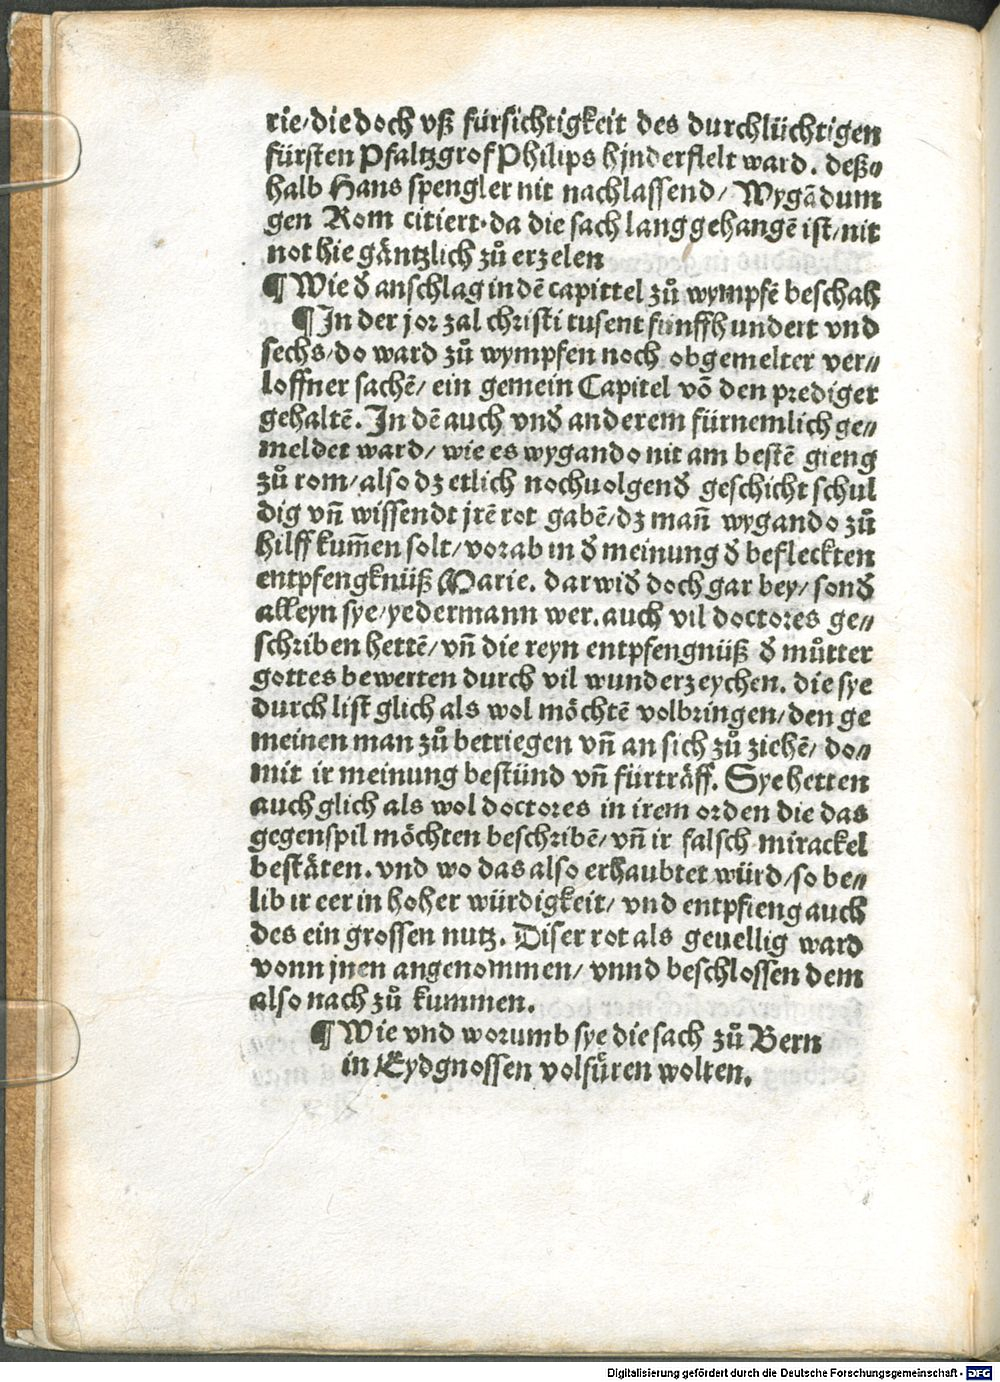 rie/die doch vß fürsichtigkeit des durchlüchtigen
fürsten Pfaltzgrof Philips hjnderstelt ward. deß⸗
halb Hans spengler nit nachlassend/ Wygādum
gen Rom citiert. da die sach lang gehangē ist/nit
not hie gäntzlich zů erzelen
¶ Wie đ anschlag in dē capittel zů wympfē beschah
¶ In der jor zal christi tusent fünffhundert vnd
sechs/do ward zů wympfen noch obgemelter ver⸗
loffner sachē/ ein gemein Capitel vō den prediger
gehaltē. In dē auch vnđ anderem fürnemlich ge⸗
meldet ward/ wie es wygando nit am bestē gieng
zů rom/also dz etlich nochuolgenđ geschicht schul
dig vn̄ wissendt jrē rot gabē/dz man̄ wygando zů
hilff kum̄en solt/vorab in đ meinung đ befleckten
entpfengknüß Marie. darwiđ doch gar bey/ sonđ
alleyn sye/yedermann wer. auch vil doctores ge⸗
schriben hettē/vn̄ die reyn entpfengnüß đ můtter
gottes bewerten durch vil wunderzeychen. die sye
durch list glich als wol möchtē volbringen/den ge
meinen man zů betriegen vn̄ an sich zů ziehē/ do⸗
mit ir meinung bestünd vn̄ fürträff. Sye hetten
auch glich als wol doctores in irem orden die das
gegenspil möchten beschribē/vn̄ ir falsch mirackel
bestäten. vnd wo das also erhaubtet würd/so be⸗
lib ir eer in hoher würdigkeit/ vnd entpfieng auch
des ein grossen nutz. Diser rot als geuellig ward
vonn jnen angenommen/ vnnd beschlossen dem
also nach zů kummen.
¶ Wie vnd worumb sye die sach zů Bern
in Eydgnossen volfüren wolten.
Digitalisierung gefördert durch die Deutsche Forschungsgemeinschaft - DFG